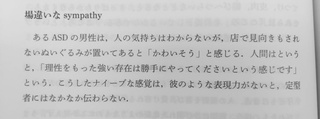 場違いな sympathy
あるASDの男性は，人の気持ちはわからないが，店で見向きもさ
れないぬいぐるみが置いてあると「かわいそう」と感じる．人間はという
と，「理性をもった強い存在は勝手にやってくださいという感じです」
という．こうしたナイーブな感覚は，彼のような表現力がないと，定型
者にはなかなか伝わらない．